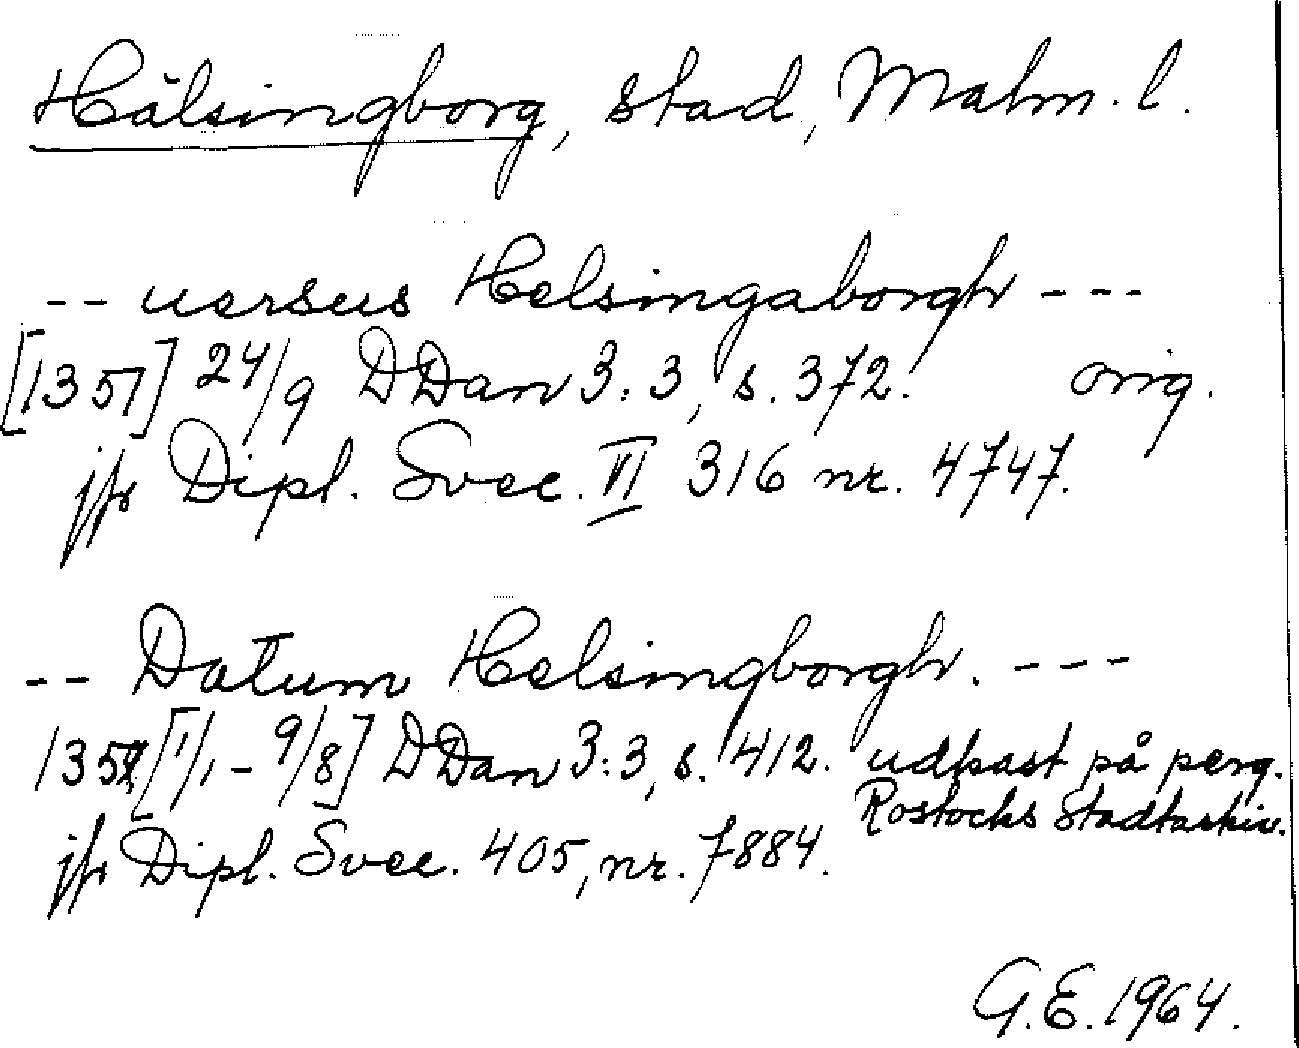 Hälsingborg, stad, Malm. l.
-- uersus Helsingaborgh ---
[1351] 24/9 DDan 3:3, s. 372. orig.
jfr Dipl. Svec. VI 316 nr. 4747.
-- Datum Helsingborgh. ---
[1/1 - 9/8] DDan 3:3, s. 412. udkast på perg.
Rostocks Stadtarkiv.
jfr Dipl. Svec. 405, nr. 7884.
G.E. 1964.